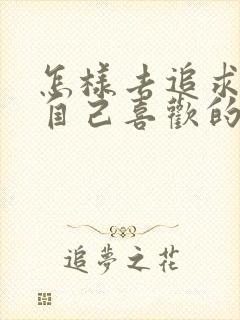 怎樣去追求
自己喜歡的
追夢之花